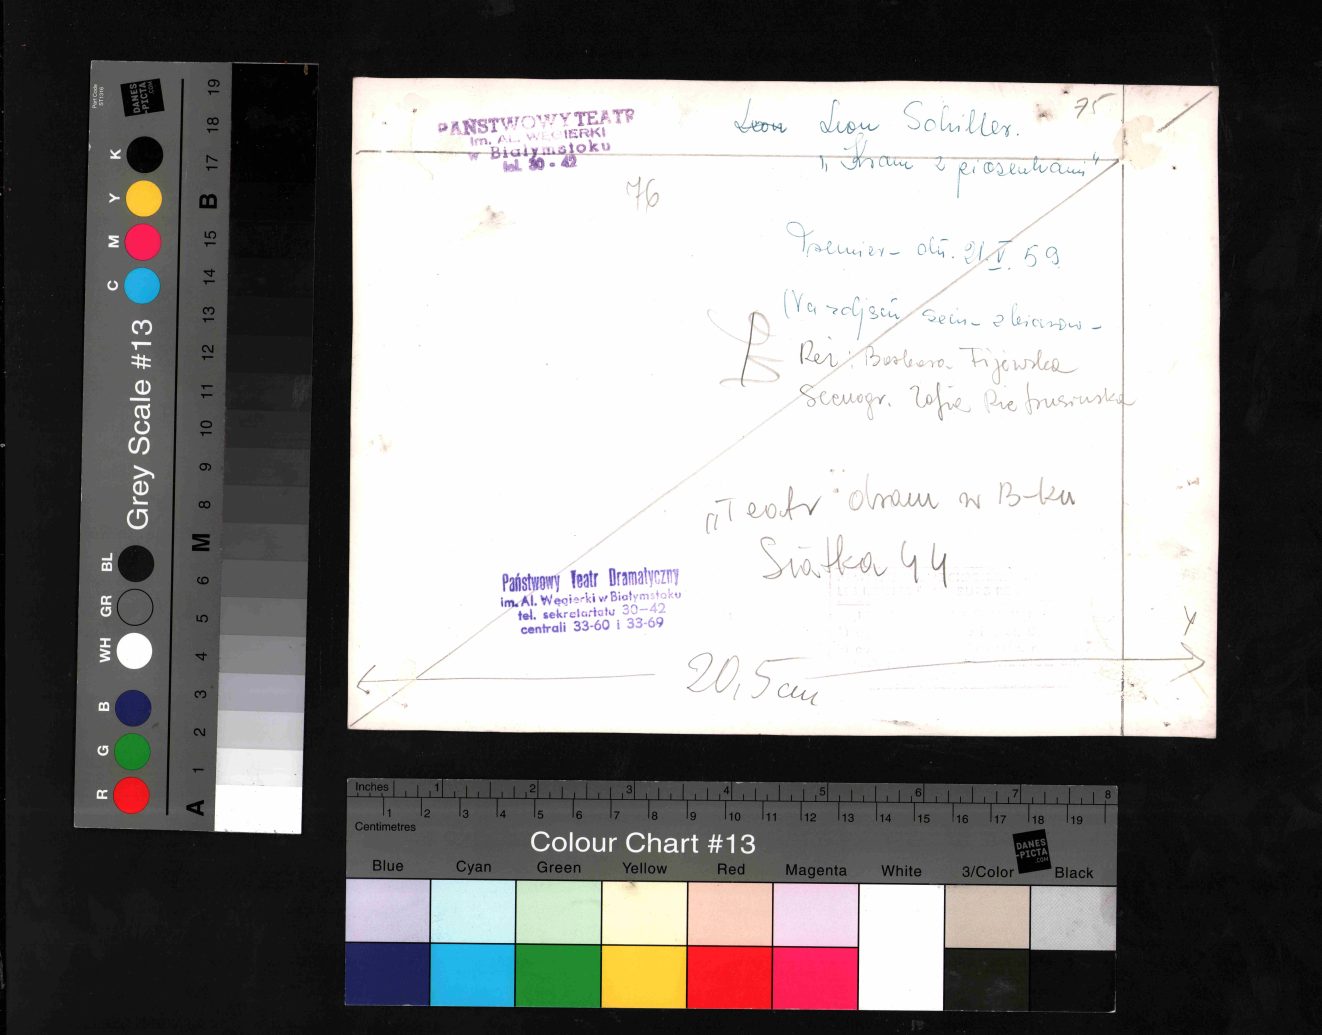 PAŃSTWOWY TEATR
im. AL. WĘGIERKI
w Białymstoku
tel. 30 - 42
75
Leon Leon Schiller.
„Kram z piosenkami"
76
Premier- dn. 21.V. 59
Na zdjęciu scen- zbiorow-
Reż: Barbara Fijewska
Scenogr. Zofia Pietrusińska
„Teatr" dram w B-ku
Siatka 44
Państwowy Teatr Dramatyczny
im. Al. Węgierki w Białymstoku
tel. sekretariatu 30—42
centrali 33-60 i 33-69
20,5 cm
Grey Scale #13
DANES
-PICTA
.COM
Part Code
ST1316
K
Y
M
C
BL
GR
WH
B
G
R
A 1 2 3 4 5 6 M 8 9 10 11 12 13 14 15 B 17 18 19
Inches 1 2 3 4 5 6 7 8
1 2 3 4 5 6 7 8 9 10 11 12 13 14 15 16 17 18 19
Centimetres
Colour Chart #13
DANES
-PICTA
.COM
Blue Cyan Green Yellow Red Magenta White 3/Color Black